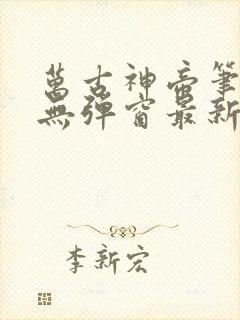 萬古神帝筆
無彈窗最新
李新宏